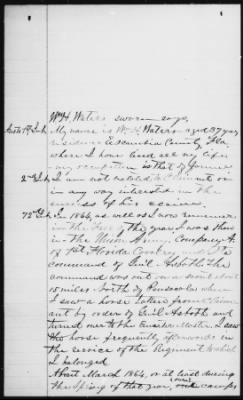 Wm H. Waters sworn says,
My name is Wm H. Waters aged 37 years
residence Escambia County Fla,
where I have lived all my life
my occupation is that of
2nd I am not related to Claimant or
in any way interested in the
success of his claims.
In 1864, as well as I can remember
the year I was
in the Union Army, Company A.
of 1st Florida Cavalry under the
command of Genl. Asboth. The
command was out on a scout about
15 miles North of Pensacola when
I saw a horse taken from Claim-
ant by order of Genl Asboth and
turned over to the Quarter Master. I saw
the horse frequently afterwards in
the service of the Regiment to which
I belonged.
About March 1864, or at least during
the Spring of that year, our camps